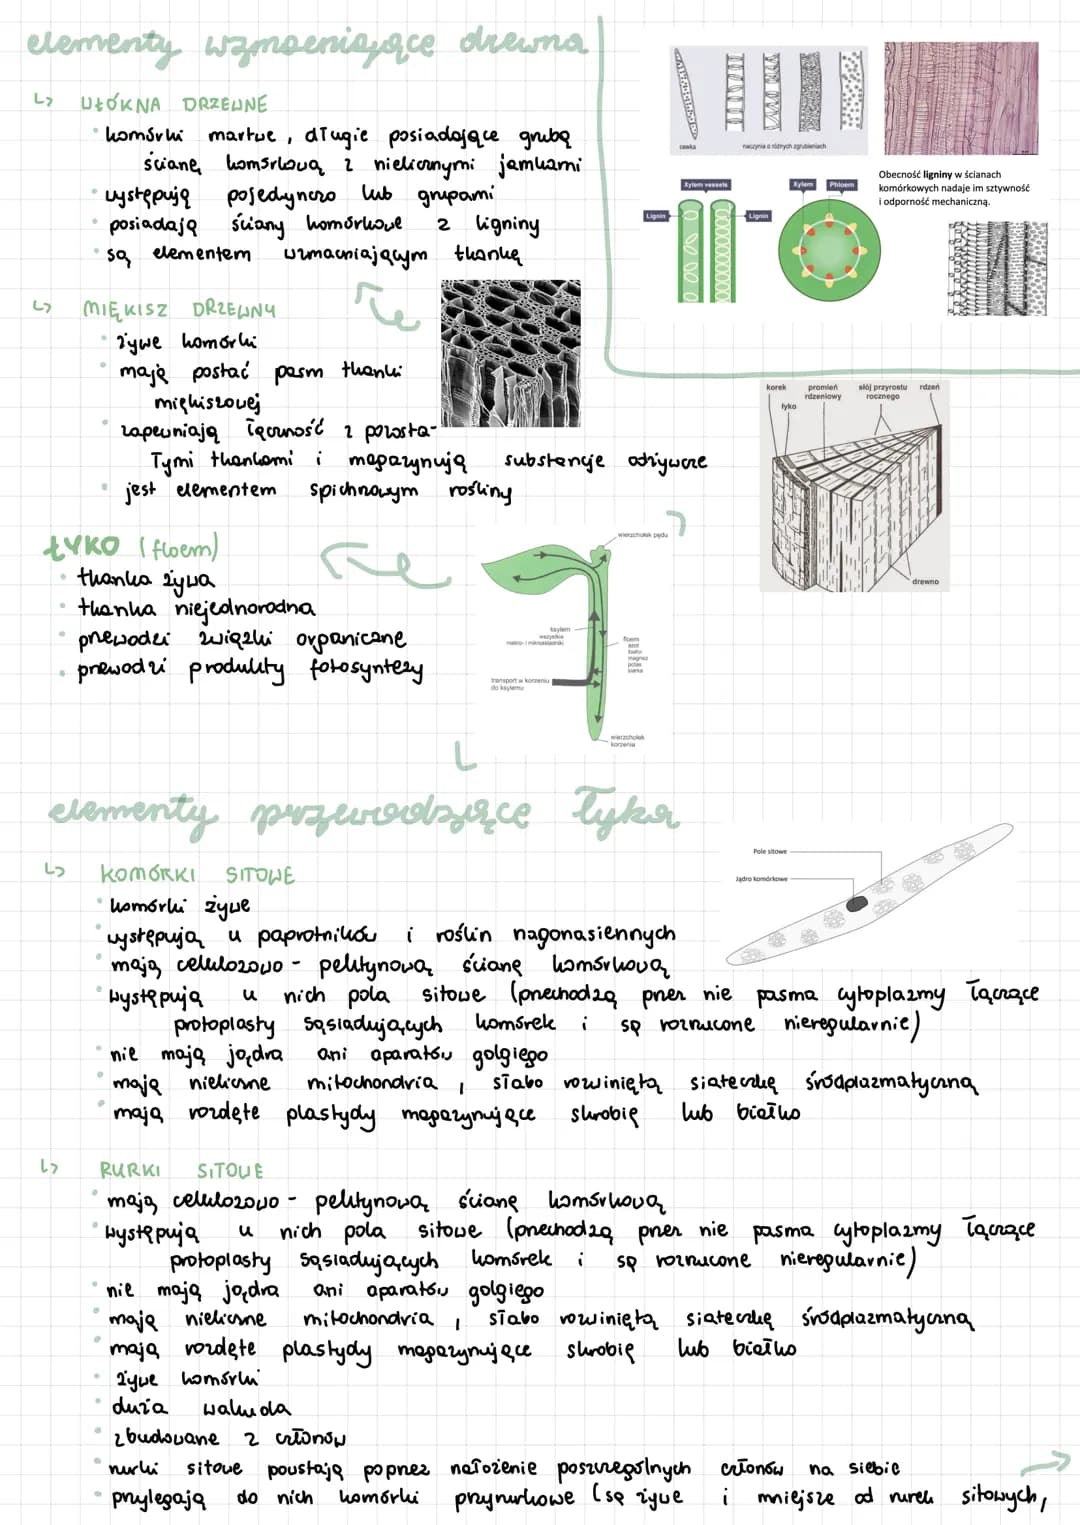 elementy wzmacniające drewna
↳ WŁÓKNA DRZEWNE
• komórki martwe, długie posiadające grubą
ścianę komórkową z nielicznymi jamkami
• występują pojedynczo lub grupami
• posiadają ściany komórkowe z ligniny
• są elementem wzmacniającym tkankę
cewka
naczynia o różnych zgrubieniach
Xylem vessels
Lignin
Lignin
Xylem
Phloem
Obecność ligniny w ścianach
komórkowych nadaje im sztywność
i odporność mechaniczną.
↳ MIĘKISZ DRZEWNY
• żywe komórki
• mają postać pasm tkanki
miękiszowej
• zapewniają łączność z pozosta-
łymi tkankami i magazynują substancje odżywcze
• jest elementem spichrzowym rośliny
korek
łyko
promień
rdzeniowy
słój przyrostu
rocznego
rdzeń
drewno
ŁYKO (floem)
• tkanka żywa
• tkanka niejednorodna
• przewodzi związki organiczne
• przewodzi produkty fotosyntezy
wierzchołek pędu
ksylem
wszystkie
makro- i mikroskładniki
floem
azot
fosfor
magnez
potas
siarka
transport w korzeniu
do ksylemu
wierzchołek
korzenia
elementy przewodzące łyka
↳ KOMÓRKI SITOWE
• komórki żywe
• występują u paprotników i roślin nagonasiennych
• mają celulozowo - pektynową ścianę komórkową
• występują u nich pola sitowe (przechodzą przez nie pasma cytoplazmy łączące
protoplasty sąsiadujących komórek i są rozrzucone nieregularnie)
• nie mają jądra ani aparatów golgiego
• mają nieliczne mitochondria, słabo rozwiniętą siateczkę śródplazmatyczną
• mają rozdęte plastydy magazynujące skrobię lub białko
Pole sitowe
Jądro komórkowe
↳ RURKI SITOWE
• mają celulozowo - pektynową ścianę komórkową
• występują u nich pola sitowe (przechodzą przez nie pasma cytoplazmy łączące
protoplasty sąsiadujących komórek i są rozrzucone nieregularnie)
• nie mają jądra ani aparatów golgiego
• mają nieliczne mitochondria, słabo rozwiniętą siateczkę śródplazmatyczną
• mają rozdęte plastydy magazynujące skrobię lub białko
• żywe komórki
• duża wakuola
• zbudowane z członów
• rurki sitowe powstają poprzez nałożenie poszczególnych członów na siebie
• przylegają do nich komórki przyrurkowe (są żywe i mniejsze od rurek sitowych,